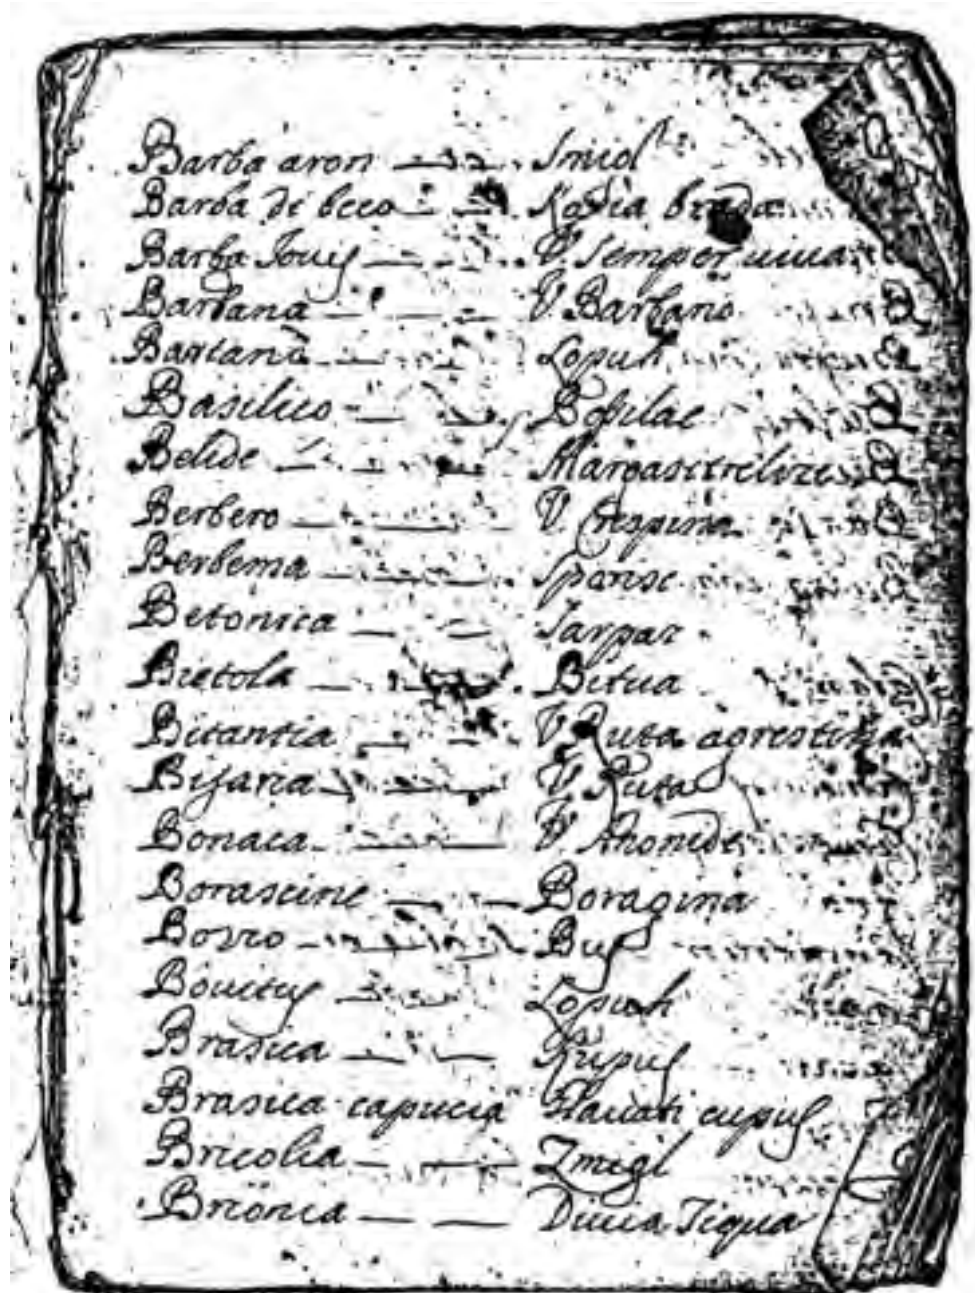 Barba aron — Smicol
Barba di beco — Kosia brada
Barba Jovis — V. Semper viva
Barbana — V. Barbano
Bardana — Lopuh
Basilico — Bosilac
Belide — Margaritelize
Berbero — V. Crespina
Berbema — Sporisc
Betonica — Sarpaz
Bietola — Bitua
Bitantia — V. Ruta agrestima
Bisaria — V. Ruta
Bonaca — V. Anonide
Borascine — Boragina
Bovro — Bus
Bovitus — Lopuh
Brasica — Kupus
Brasica capucia Glavati cupus
Bricolia — Zmigl
Brionia — Divia Tiqua